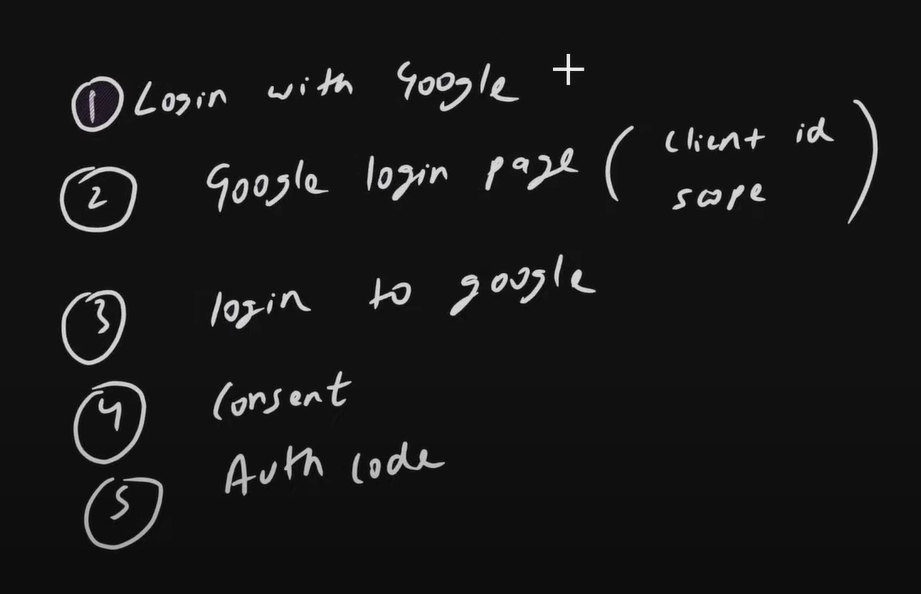 1 Login with Google
2 Google login page ( client id
scope )
3 login to google
4 Consent
5 Auth code